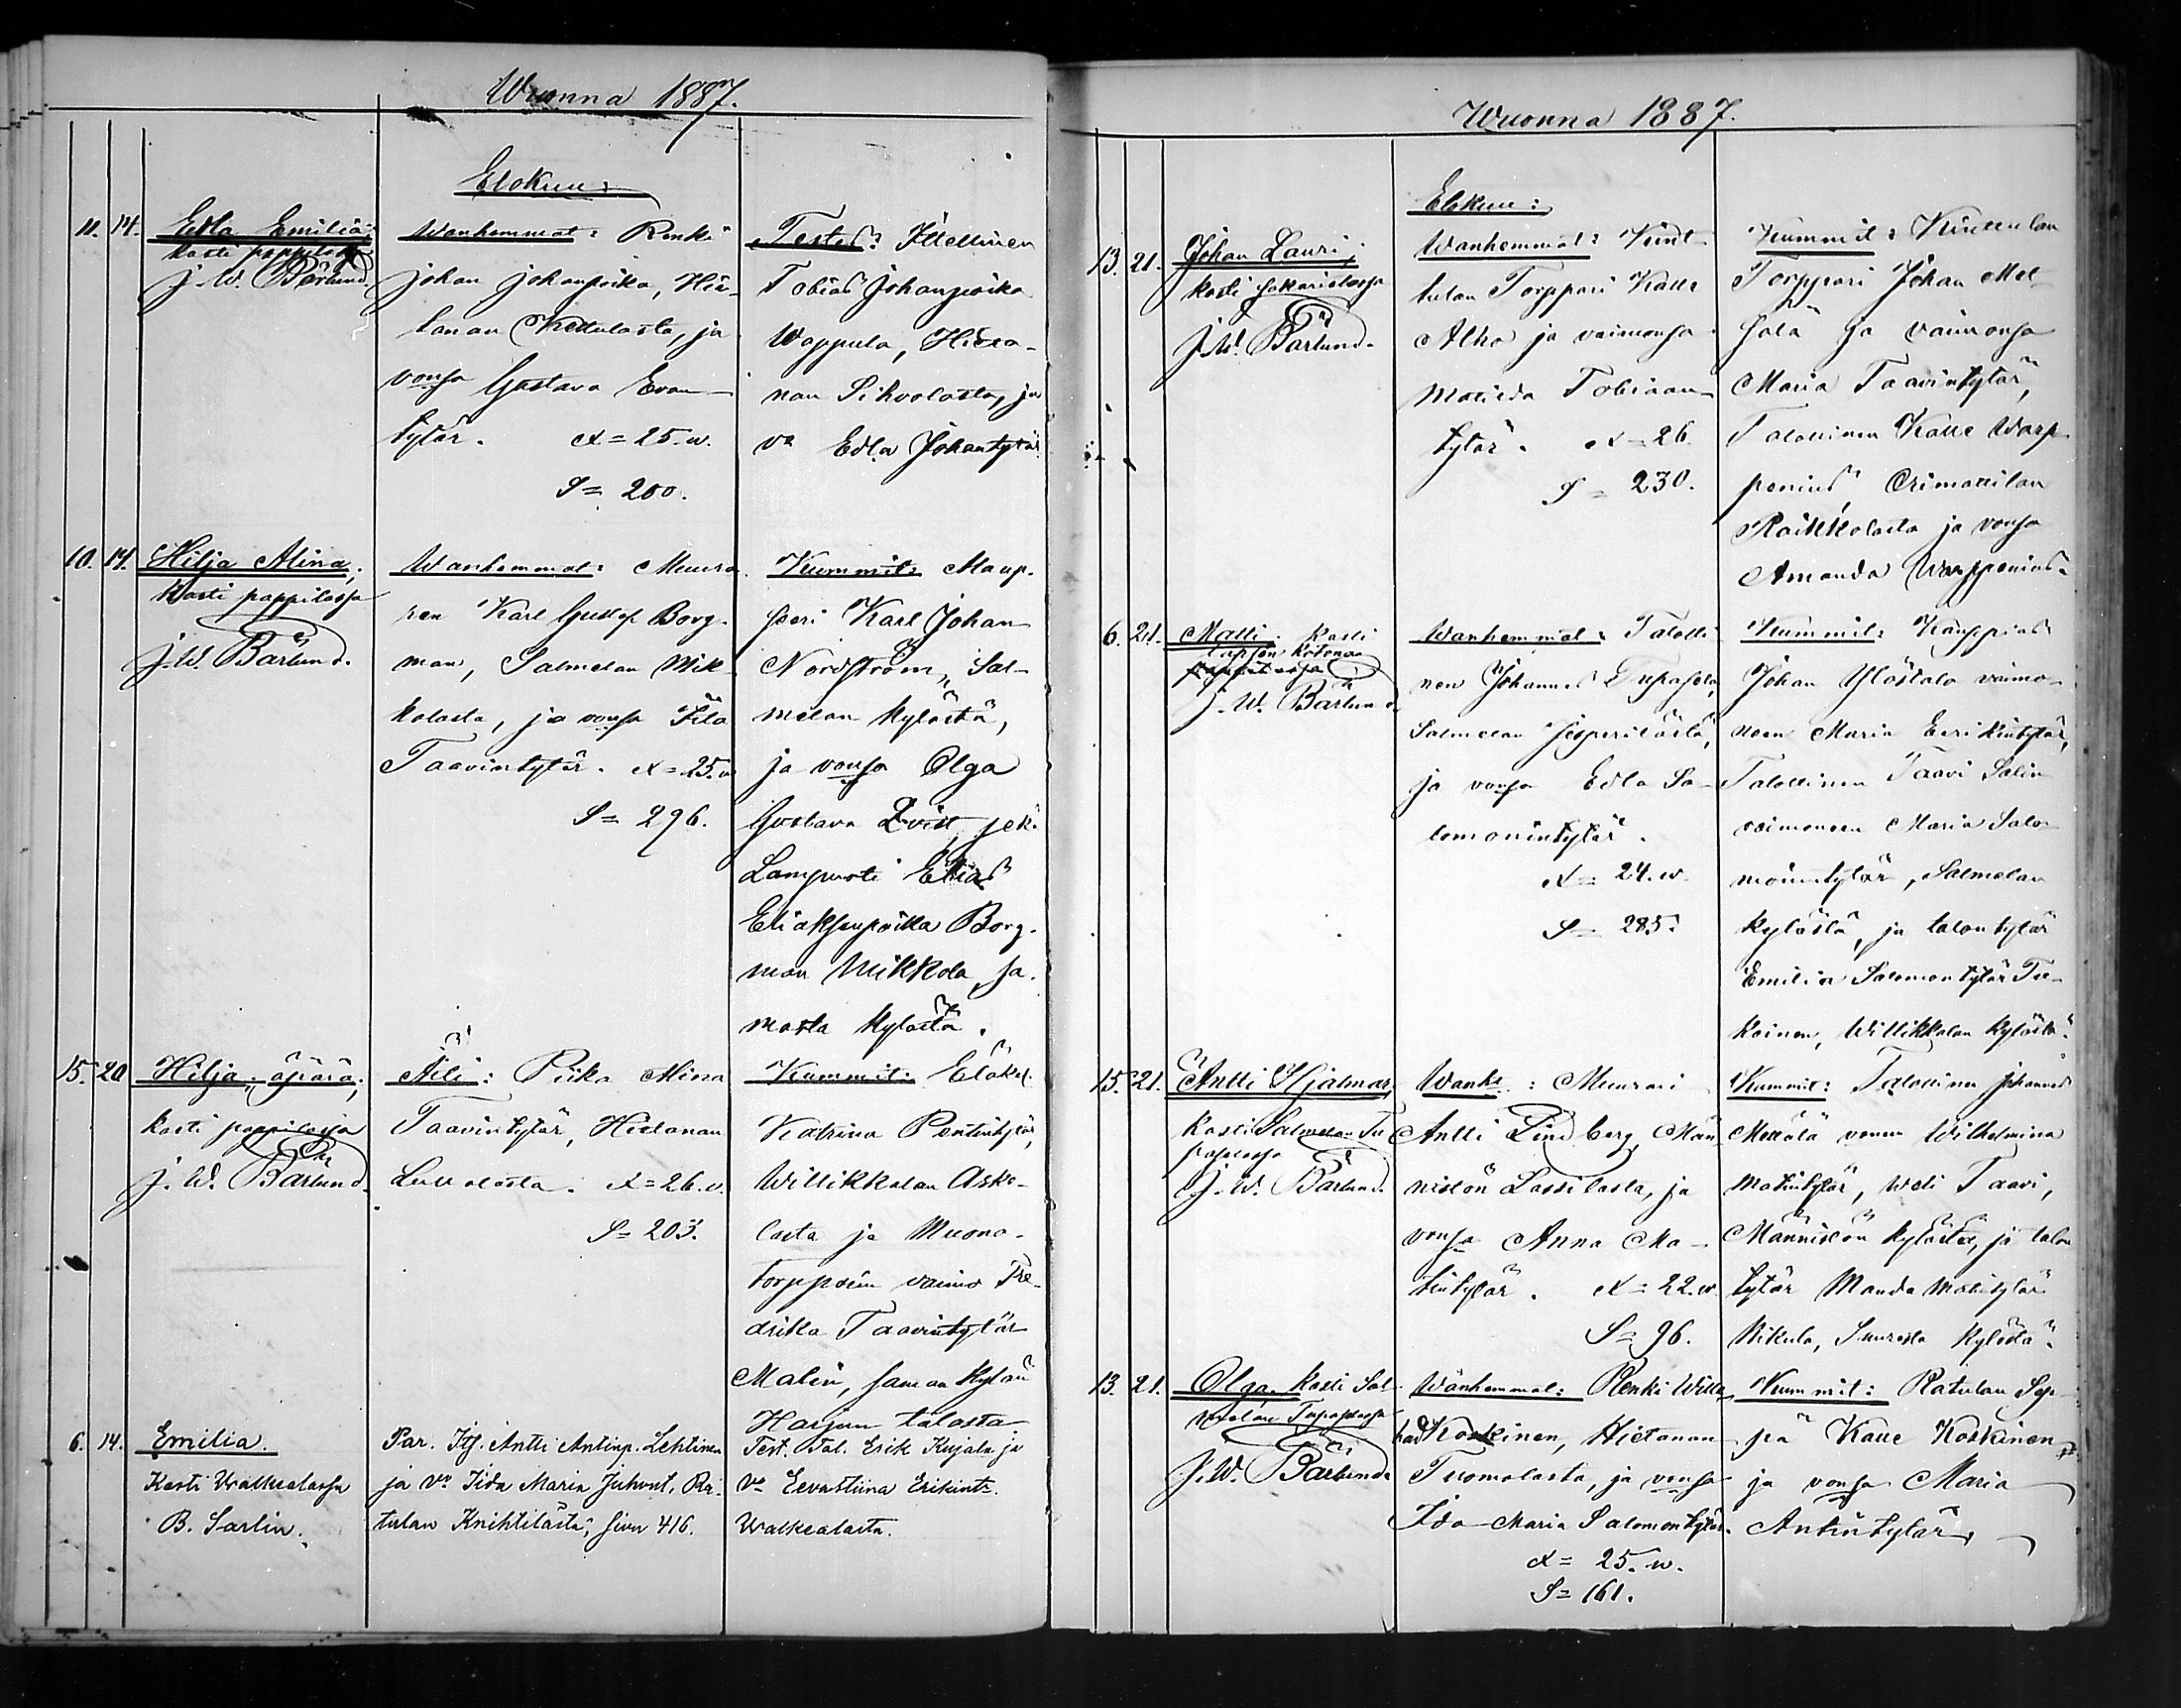 Wuonna 1887.
Elokuu:
11. 14. Edla Emilia;
kasti pappilassa
J. W. Bärlund.
Wanhemmat: Renki
Johan Johanpoika, Hie-
tanan Kettulasta, ja
vonsa Gustava Evan
tytär. Ä = 25. w.
S = 200.
Testes: Itellinen
Tobias Johanpoika
Woppula, Hieta-
nan Sihvolasta, ja
va Edla Johantytär
10. 14. Hilja Alina;
Kasti pappilassa
J. W. Bärlund.
Wanhemmat: Muura
ren Karl Gustaf Borg-
man, Salmelan Mik-
kolasta, ja vonsa Iida
Taavintytär. Ä = 25. w
S = 296.
Kummit: Kaup-
Karl Johan
Nordström, Sal-
melan kylästä,
ja vonsa Olga
Gustava Qvist, sek.
Lampuoti Elias
Eliaksenpoika Borg-
man Mikkola, sa-
masta kylästä.
15. 20 Hilja, äpärä;
kasti pappilassa
J. W. Bärlund.
Äiti: Piika Mina
Taavintytär, Hietanan
Ä = 26. v.
S = 203.
Kummit: Eläk.
Katrina Pentintytär,
Willikkalan Asko-
lasta ja Muona-
torpparin vaimo Fre-
drika Taavintytär
Malin, saman kylän
Harjun talosta
6. 14. Emilia.
Kasti Walkealassa
B. Sarlin.
Par. Itj. Antti Antinp. Lehtinen
ja Vo Iida Maria Juhont. Ra-
tulan Knihtilästä, sivu 416.
Test. Tal. Erik Kujala ja
Vo Eevastiina Erikint.
Walkealasta.
Wuonna 1887.
Elokuu:
13. 21. Johan Lauri;
kasti sakaristossa
J. W. Bärlund.
Wanhemmat:
tulan Torppari Kalle
Alho ja vaimonsa
Matilda Tobiaan
tytär. Ä = 26.
S = 230.
Kummit:
Torppari Johan Met
sälä ja vaimonsa
Maria Taavintytär,
Talollinen Kalle Warp-
penius Orimattilan
Raikkolasta ja vonsa
Amanda Warppenius.
6. 21. Matti. kasti
lapsen kotona
J. W. Bärlund
Wanhemmat: Talolli
nen Johannes Tupasela,
Salmelan Jesperilästä,
ja vonsa Edla Sa-
lomonintytär.
Ä = 24. w.
S = 285.
Kummit: Kauppias
Johan Ylöstalo vaimo-
neen Maria Eerikintytär,
Talollinen Taavi Salin
vaimoneen Maria Salo-
monintytär, Salmelan
kylästä, ja talon tytär
Emilia Salomontytär Tu-
koinen, Willikkalan kylästä.
15. 21. Antti Hjalmar;
Kasti Salmelan Tu
paselassa
J. W. Bärlund.
Wanh: Muurari
Antti Lindberg, Män
nistön Lassilasta, ja
vonsa Anna Ma-
tintytär. Ä = 22. w.
S = 96.
Kummit: Talollinen Johannes
Mettälä vonen Wilhelmina
Matintytär, weli Taavi,
Männistön kylästä, ja talon
tytär Manda Matintytär
Nikula, Suuresta kylästä.
13. 21. Olga. kasti Sal-
melan Tupaselassa
J. W. Bärlund.
Wanhemmat: Renki Wille
had Koskinen, Hietanan
Tuomolasta, ja vonsa
Ida Maria Salomontytär.
Ä = 25. w.
S = 161.
Kummit: Ratulan Sep-
pä Kalle Koskinen
ja vonsa Maria
Antintytär,